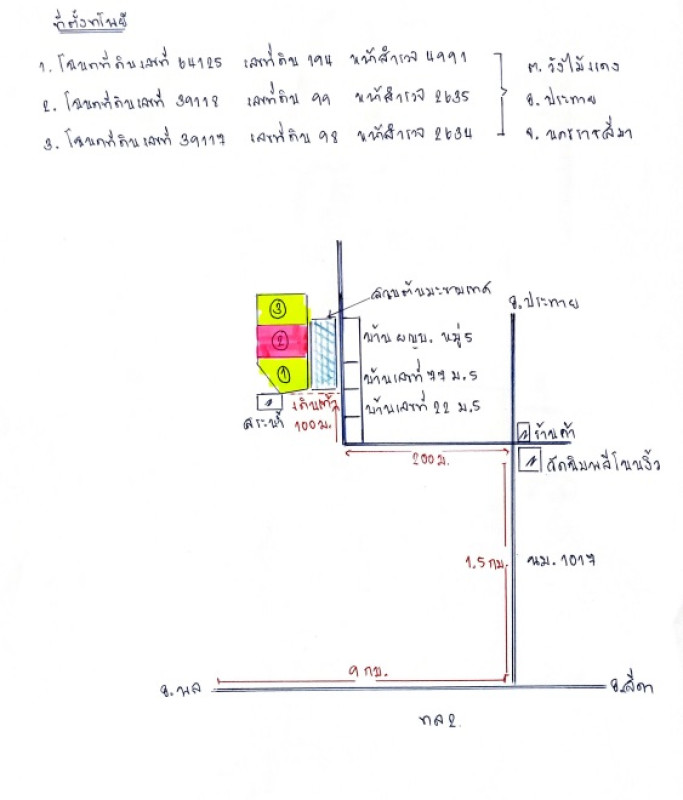 ที่ตั้งทรัพย์
1. โฉนดที่ดินเลขที่ 64125 เลขที่ดิน 194 หน้าสำรวจ 4991 ต. วังไม้แดง
2. โฉนดที่ดินเลขที่ 39118 เลขที่ดิน 99 หน้าสำรวจ 2635 อ. ประทาย
3. โฉนดที่ดินเลขที่ 39117 เลขที่ดิน 98 หน้าสำรวจ 2634 จ. นครราชสีมา
สวนต้นมะขามเทศ
อ.ประทาย
3
2
1
บ้าน ผญบ. หมู่ 5
บ้านเลขที่ 77 ม.5
บ้านเลขที่ 22 ม.5
สระน้ำ
เดินเท้า
100 ม.
ร้านค้า
200 ม.
วัดฉิมพลีโนนงิ้ว
1.5 กม.
นม. 1017
9 กม.
อ.พล
อ.สีดา
ทล 2